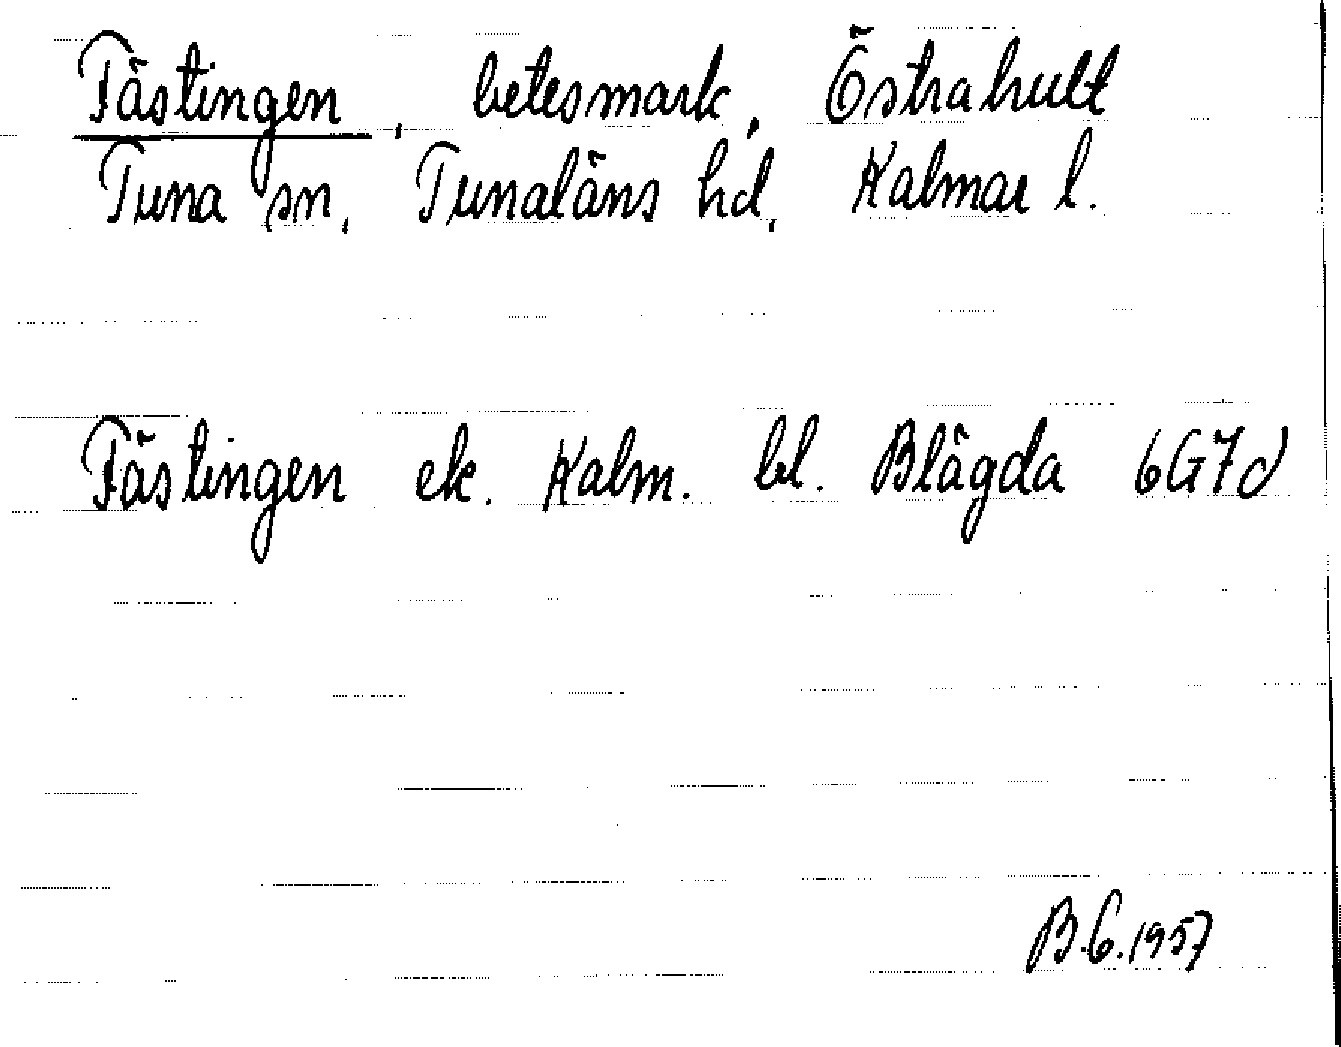 Fästingen, betesmark, Östrahult
Tuna sn, Tunaläns hd, Kalmar l.
Fästingen ek. Kalm. bl. Blägda 6G7d
B.G.1957